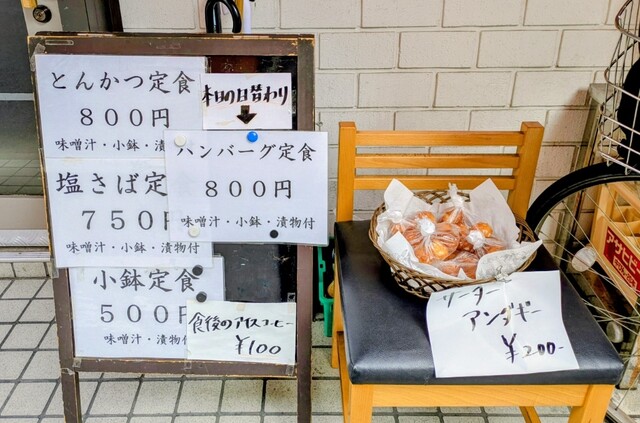 とんかつ定食
800円
味噌汁・小鉢・漬
本日の日替わり
ハンバーグ定食
800円
味噌汁・小鉢・漬物付
塩さば定
750円
味噌汁・小鉢・漬物付
小鉢定食
500円
味噌汁・小鉢・漬物付
食後のアイスコーヒー
¥100
ソーター
アンダギー
¥200-
アサヒ